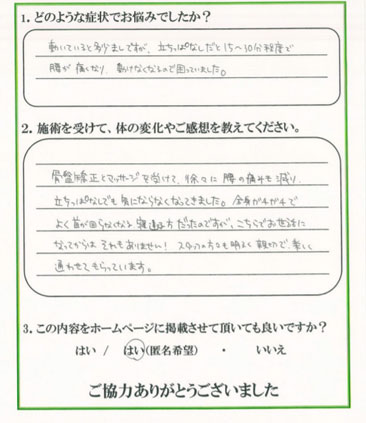 1. どのような症状でお悩みでしたか？
動いていると多少ましですが、立ちっぱなしだと15〜30分程度で
腰が痛くなり、動けなくなるので困っていました。
2. 施術を受けて、体の変化やご感想を教えてください。
骨盤矯正とマッサージを受けて、徐々に腰の痛みも減り、
立ちっぱなしでも気にならなくなってきました。全身がガチガチで
よく首が回らなくなる寝違え方だったのですが、こちらでお世話に
なってからは それもありません！スタッフの方々も明るく親切で、楽しく
通わせてもらっています。
3. この内容をホームページに掲載させて頂いても良いですか？
はい / はい(匿名希望) ・ いいえ
ご協力ありがとうございました